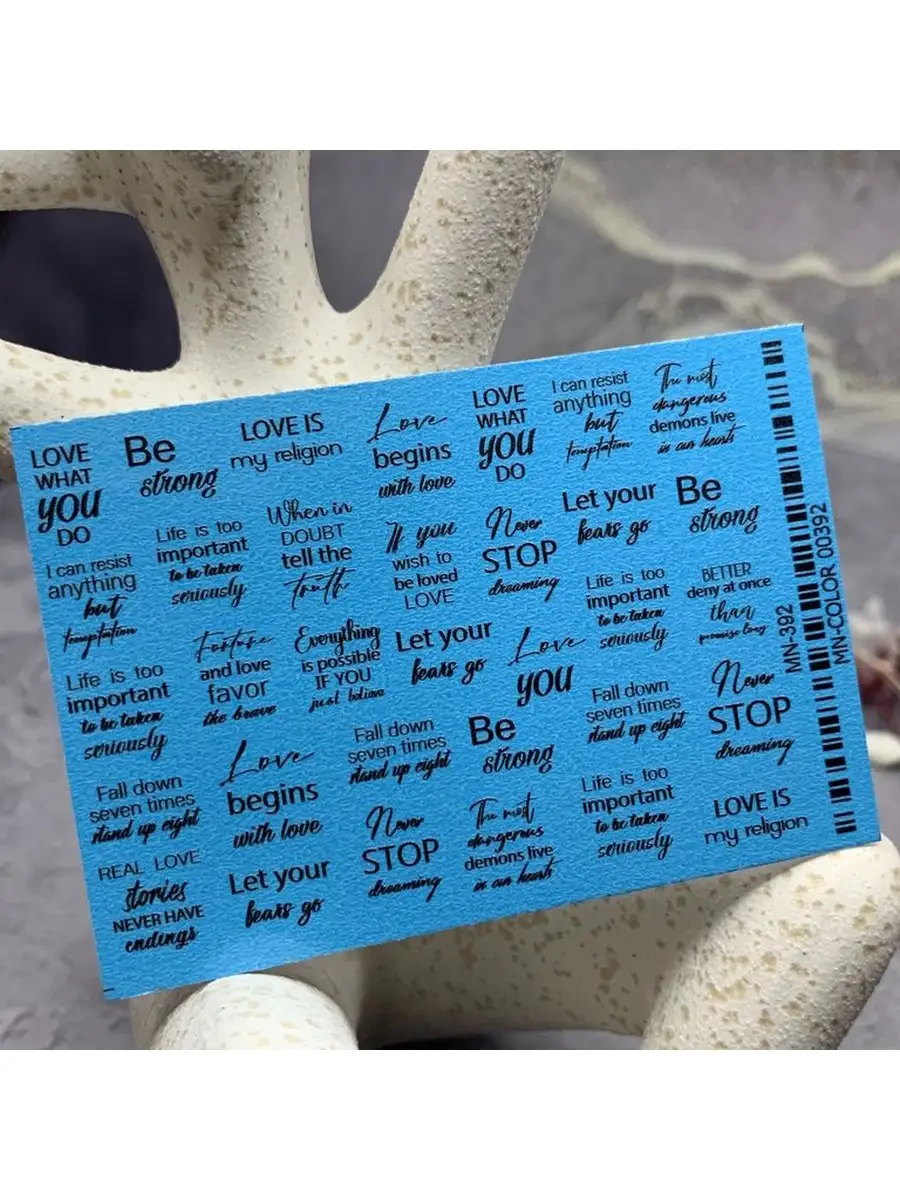 LOVE
WHAT
YOU
DO
Be
strong
LOVE IS
my religion
Love
begins
with love
LOVE
WHAT
YOU
DO
I can resist
anything
but
temptation
The most
dangerous
demons live
in our hearts
I can resist
anything
but
temptation
Life is too
important
to be taken
seriously
When in
DOUBT
tell the
truth
If you
wish to
be loved
LOVE
Never
STOP
dreaming
Let your
fears go
Be
strong
Life is too
important
to be taken
seriously
Fortune
and love
favor
the brave
Everything
is possible
IF YOU
just believe
Let your
fears go
Love
YOU
Life is too
important
to be taken
seriously
BETTER
deny at once
than
promise long
Fall down
seven times
stand up eight
Love
begins
with love
Fall down
seven times
stand up eight
Be
strong
Fall down
seven times
stand up eight
Never
STOP
dreaming
REAL LOVE
stories
NEVER HAVE
endings
Let your
fears go
Never
STOP
dreaming
The most
dangerous
demons live
in our hearts
Life is too
important
to be taken
seriously
LOVE IS
my religion
MN-392
MN-COLOR 00392